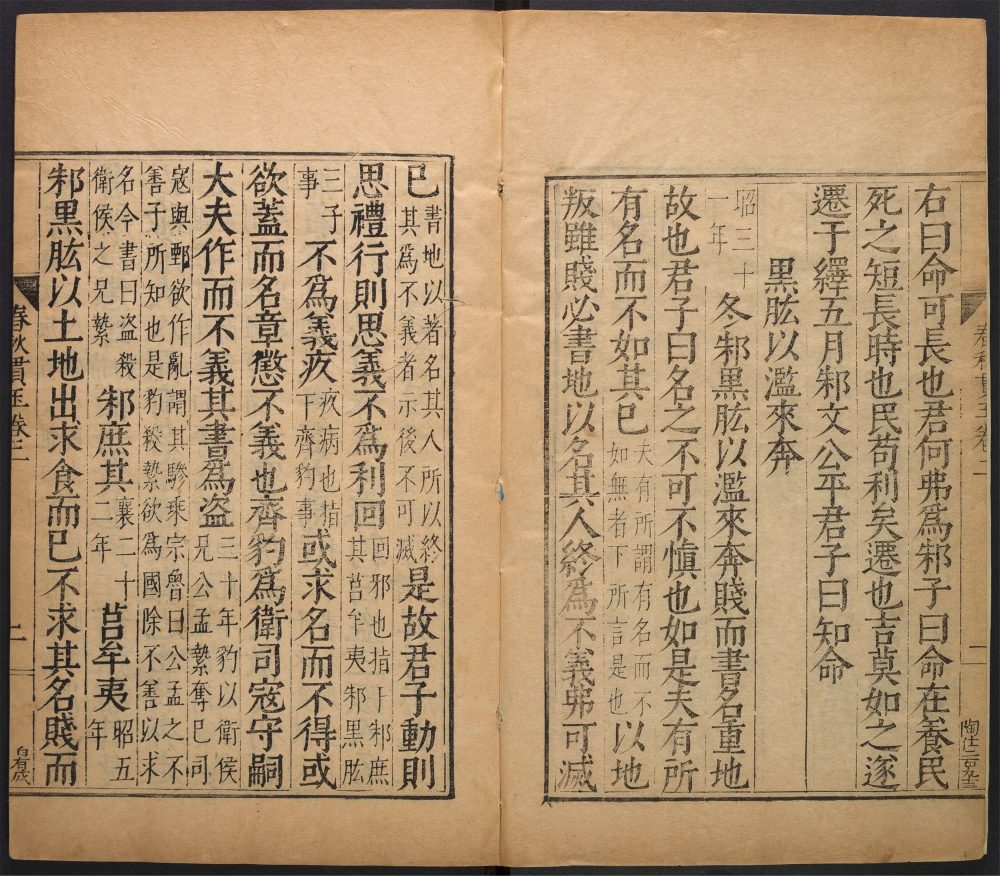 春秋貫玉卷
一
右曰命可長也君何弗爲邾子曰命在養民
死之短長時也民苟利矣遷也吉莫如之遂
遷于繹五月邾文公卒君子曰知命
黑肱以濫來奔
昭三十一年冬邾黑肱以濫來奔賤而書名重地
故也君子曰名之不可不慎也如是夫有所
有名而不如其已夫有所謂有名而不如無者下所言是也以地
叛雖賤必書地以名其人終爲不義弗可滅
已書地以著名其人所以終其爲不義者示後不可滅是故君子動則
思禮行則思義不爲利回回邪也指下邾庶其莒牟夷邾黑肱
三子事不爲義疚疚病也指下齊豹事或求名而不得或
欲蓋而名章懲不義也齊豹爲衛司寇守嗣
大夫作而不義其書爲盜三十年豹以衛侯兄公孟縶奪已司
寇與鄄欲作亂謂其驂乘宗魯曰公孟之不善子所知也是豹殺縶欲爲國除不善以求
名今書曰盜殺衛侯之兄縶邾庶其襄二十二年莒牟夷昭五年
邾黑肱以土地出求食而已不求其名賤而
春秋貫玉卷
二